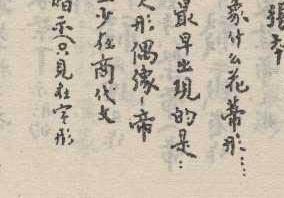 張本
象什么花蒂形……
最早出現的是…
人形偶像,帝
至少在商代文
暗示(只見在字形